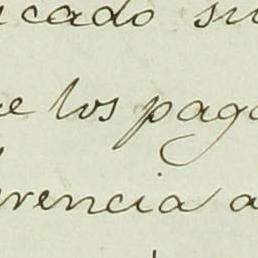 icado su
e los pag
rencia a